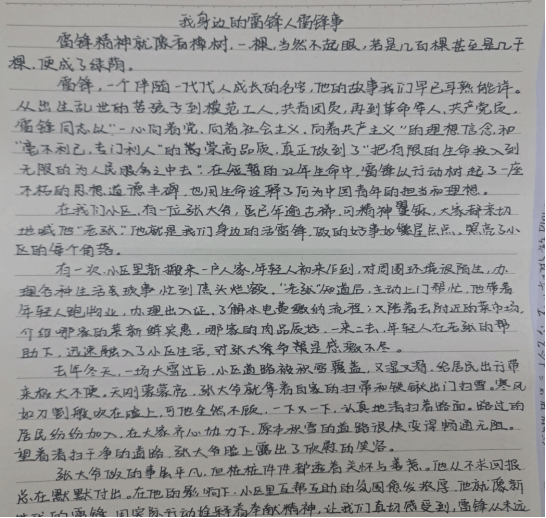 我身边的雷锋人雷锋事
雷锋精神就像香樟树，一棵，当然不起眼，若是几百棵甚至是几千
棵，便成了绿荫。
雷锋，一个伴随一代代人成长的名字，他的故事我们早已耳熟能详。
从出生乱世的苦孩子到模范工人，共青团员，再到革命军人，共产党员，
雷锋同志以“一心向着党、向着社会主义、向着共产主义”的理想信念，和
“毫不利己，专门利人”的高尚品质，真正做到了“把有限的生命投入到
无限的为人民服务之中去”，在短暂的22年生命中，雷锋以行动树起了一座
不朽的思想道德丰碑，也用生命诠释了何为中国青年的担当和理想。
在我们小区，有一位张大爷，虽已年逾古稀，可精神矍铄，大家都亲切
地喊他“老张”，他就是我们身边的活雷锋，做的好事如繁星点点，照亮了小
区的每个角落。
有一次，小区里新搬来一户人家，年轻人初来乍到，对周围环境很陌生，办
理各种生活琐事忙到焦头烂额。“老张”知道后，主动上门帮忙，他带着
年轻人跑物业，办理出入证，了解水电费缴纳流程；又陪着去附近的菜市场，
介绍哪家的菜新鲜实惠，哪家的肉品质好，一来二去，年轻人在老张的帮
助下，迅速融入了小区生活，对张大爷感激不尽。
去年冬天，一场大雪过后，小区道路被积雪覆盖，又湿又滑，给居民出行带
来极大不便。天刚蒙蒙亮，张大爷就拿着自家的扫帚和铁锹出门扫雪。寒风
如刀割般吹在脸上，可他全然不顾，一下又一下，认真地清扫着路面。路过的
居民纷纷加入，在大家齐心协力下，原本积雪的道路很快变得畅通无阻。
望着清扫干净的道路，张大爷脸上露出了欣慰的笑容。
张大爷做的事虽平凡，但桩桩件件都透着关怀与善意。他从不求回报
总在默默付出，在他的影响下，小区里互帮互助的氛围愈发浓厚，他就像新
时代的雷锋，用实际行动诠释着奉献精神，让我们真切感受到，雷锋从未远